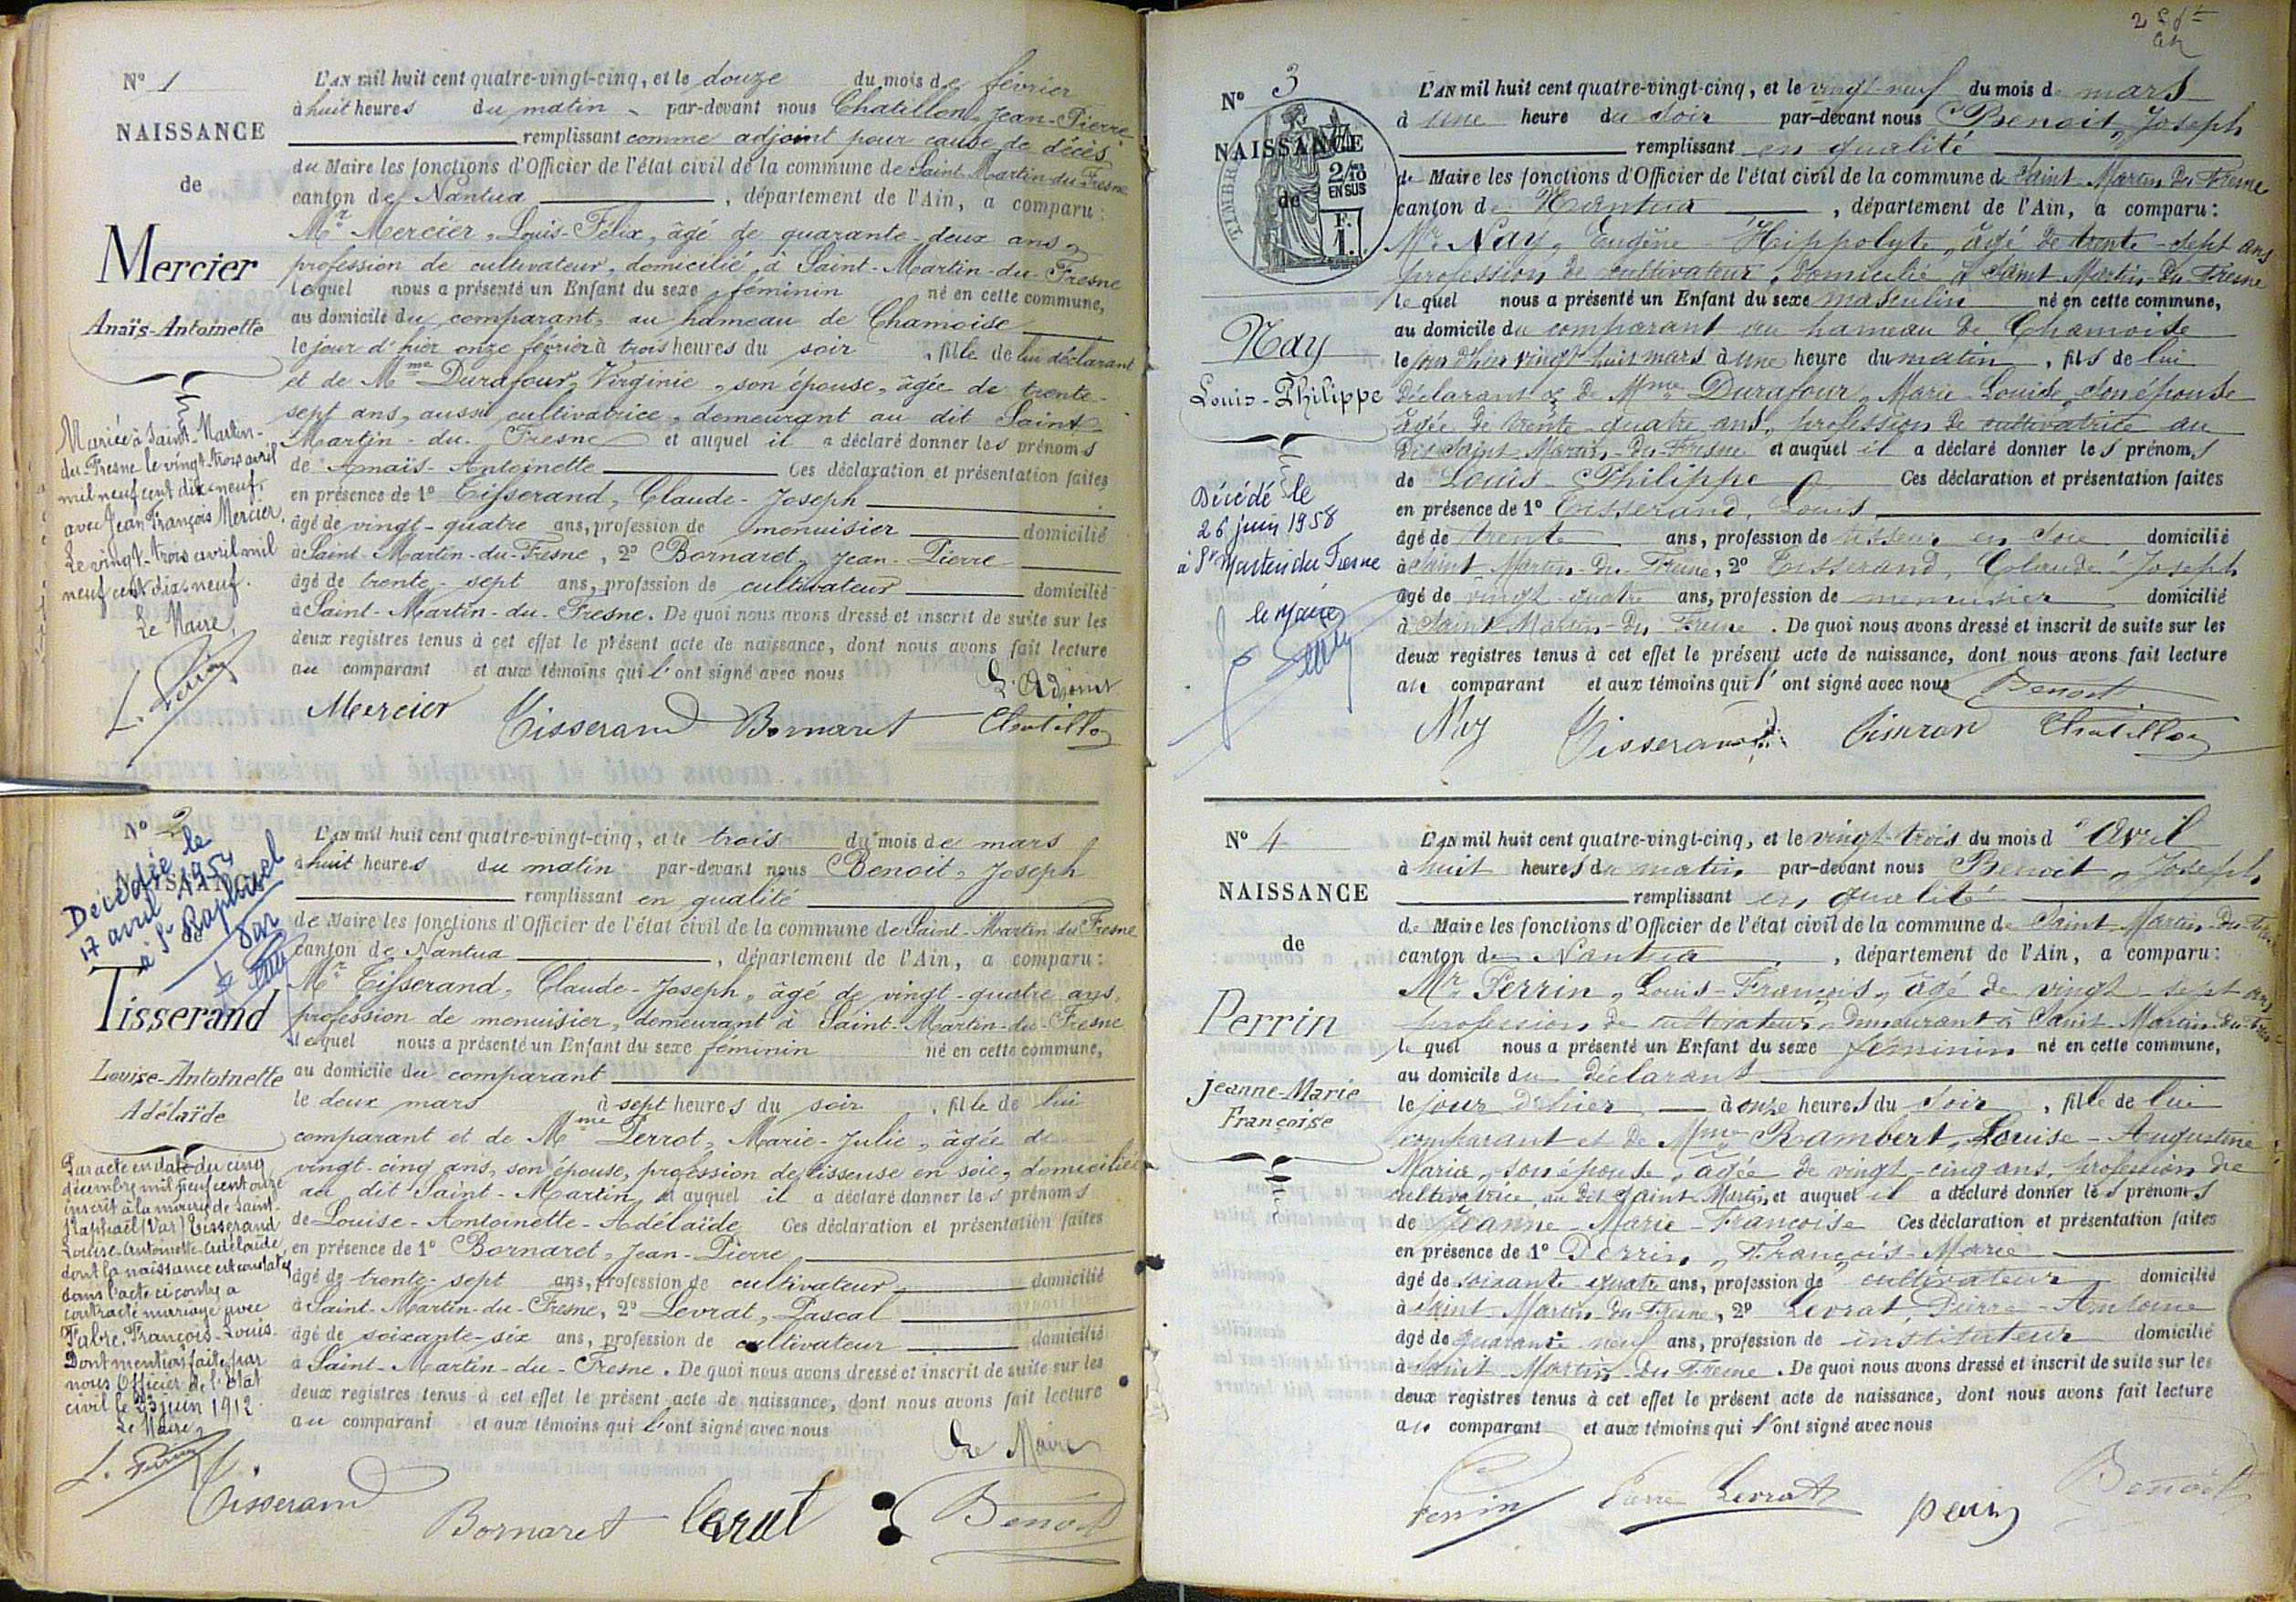 N° 1
NAISSANCE
de
Mercier
Anaïs-Antoinette
Mariée à Saint-Martin-
du-Fresne le vingt-trois avril
mil neuf cent dix-neuf
avec Jean François Mercier.
Le vingt-trois avril mil
neuf cent dix-neuf.
Le Maire,
L. Perrin
L'AN mil huit cent quatre-vingt-cinq, et le douze du mois de février
à huit heures du matin par-devant nous Chatillon, Jean-Pierre
remplissant comme adjoint pour cause de décès
du Maire les fonctions d'Officier de l'état civil de la commune de Saint-Martin-du-Fresne
canton de Nantua, département de l'Ain, a comparu:
Mr Mercier, Louis-Félix, âgé de quarante-deux ans,
profession de cultivateur, domicilié à Saint-Martin-du-Fresne
lequel nous a présenté un Enfant du sexe féminin né en cette commune,
au domicile du comparant, au hameau de Chamoise
le jour d'hier onze février à trois heures du soir, fille de lui déclarant
et de Mme Durafour, Virginie, son épouse, âgée de trente-
sept ans, aussi cultivatrice, demeurant au dit Saint-
Martin-du-Fresne et auquel il a déclaré donner les prénoms
de Anaïs-Antoinette Ces déclaration et présentation faites
en présence de 1° Tisserand, Claude-Joseph
âgé de vingt-quatre ans, profession de menuisier domicilié
à Saint-Martin-du-Fresne, 2° Bornaret, Jean-Pierre
âgé de trente-sept ans, profession de cultivateur domicilié
à Saint-Martin-du-Fresne. De quoi nous avons dressé et inscrit de suite sur les
deux registres tenus à cet effet le présent acte de naissance, dont nous avons fait lecture
au comparant et aux témoins qui l'ont signé avec nous
L'Adjoint
Mercier Tisserand Bornaret Chatillon
N° 2
NAISSANCE
de
Décédée le
17 avril 1954
à St Raphael
Var
Tisserand
Louise-Antoinette
Adélaïde
Par acte en date du cinq
décembre mil neuf cent onze
inscrit à la mairie de Saint-
Raphaël (Var) Tisserand
Louise-Antoinette-Adélaïde,
dont la naissance est constatée
dans l'acte ci contre, a
contracté mariage avec
Fabre, François-Louis.
Dont mention faite par
nous Officier de l'état
civil le 23 juin 1912.
Le Maire,
L. Perrin
L'AN mil huit cent quatre-vingt-cinq, et le trois du mois de mars
à huit heures du matin par-devant nous Benoit, Joseph
remplissant en qualité
de Maire les fonctions d'Officier de l'état civil de la commune de Saint-Martin-du-Fresne
canton de Nantua, département de l'Ain, a comparu:
Mr Tisserand, Claude-Joseph, âgé de vingt-quatre ans,
profession de menuisier, demeurant à Saint-Martin-du-Fresne
lequel nous a présenté un Enfant du sexe féminin né en cette commune,
au domicile du comparant
le deux mars à sept heures du soir, fille de lui
comparant et de Mme Perrot, Marie-Julie, âgée de
vingt-cinq ans, son épouse, profession de tisseuse en soie, domiciliée
au dit Saint-Martin, et auquel il a déclaré donner les prénoms
de Louise-Antoinette-Adélaïde Ces déclaration et présentation faites
en présence de 1° Bornaret, Jean-Pierre
âgé de trente-sept ans, profession de cultivateur domicilié
à Saint-Martin-du-Fresne, 2° Levrat, Pascal
âgé de soixante-six ans, profession de cultivateur domicilié
à Saint-Martin-du-Fresne. De quoi nous avons dressé et inscrit de suite sur les
deux registres tenus à cet effet le présent acte de naissance, dont nous avons fait lecture
au comparant et aux témoins qui l'ont signé avec nous
Le Maire
Tisserand Bornaret Levrat Benoit
N° 3
NAISSANCE
de
TIMBRE
2/10
EN SUS
F.
1.
Nay
Louis-Philippe
Décédé le
26 juin 1958
à St Martin du Fresne
le Maire
L'AN mil huit cent quatre-vingt-cinq, et le vingt-neuf du mois de mars
à une heure du soir par-devant nous Benoit, Joseph
remplissant en qualité
de Maire les fonctions d'Officier de l'état civil de la commune de Saint-Martin-du-Fresne
canton de Nantua, département de l'Ain, a comparu:
Mr Nay, Eugène-Hippolyte, âgé de trente-sept ans
profession de cultivateur, domicilié à Saint-Martin-du-Fresne
lequel nous a présenté un Enfant du sexe masculin né en cette commune,
au domicile du comparant au hameau de Chamoise
le jour d'hier vingt-huit mars à une heure du matin, fils de lui
déclarant & de Mme Durafour, Marie-Louise, son épouse
âgée de trente-quatre ans, profession de cultivatrice au
dit Saint-Martin-du-Fresne et auquel il a déclaré donner les prénoms
de Louis-Philippe Ces déclaration et présentation faites
en présence de 1° Tisserand, Louis
âgé de trente ans, profession de tisseur en soie domicilié
à Saint-Martin-du-Fresne, 2° Tisserand, Claude-Joseph
âgé de vingt-quatre ans, profession de menuisier domicilié
à Saint-Martin-du-Fresne. De quoi nous avons dressé et inscrit de suite sur les
deux registres tenus à cet effet le présent acte de naissance, dont nous avons fait lecture
au comparant et aux témoins qui l'ont signé avec nous Benoit
Nay Tisserand Tisserand Chatillon
N° 4
NAISSANCE
de
Perrin
Jeanne-Marie
Françoise
L'AN mil huit cent quatre-vingt-cinq, et le vingt-trois du mois d'Avril
à huit heures du matin par-devant nous Benoit, Joseph
remplissant en qualité
de Maire les fonctions d'Officier de l'état civil de la commune de Saint-Martin-du-Fresne
canton de Nantua, département de l'Ain, a comparu:
Mr Perrin, Louis-François, âgé de vingt-sept ans
profession de cultivateur, demeurant à Saint-Martin-du-Fresne
lequel nous a présenté un Enfant du sexe féminin né en cette commune,
au domicile du déclarant
le jour d'hier à onze heures du soir, fille de lui
comparant et de Mme Rambert, Louise-Augustine
Maria, son épouse, âgée de vingt-cinq ans, profession de
cultivatrice au dit Saint Martin, et auquel il a déclaré donner les prénoms
de Jeanne-Marie-Françoise Ces déclaration et présentation faites
en présence de 1° Perrin, François-Marie
âgé de soixante quatre ans, profession de cultivateur domicilié
à Saint Martin-du-Fresne, 2° Levrat, Pierre-Antoine
âgé de quarante-neuf ans, profession de instituteur domicilié
à Saint Martin-du-Fresne. De quoi nous avons dressé et inscrit de suite sur les
deux registres tenus à cet effet le présent acte de naissance, dont nous avons fait lecture
au comparant et aux témoins qui l'ont signé avec nous
Perrin Pierre Levrat Perrin Benoit